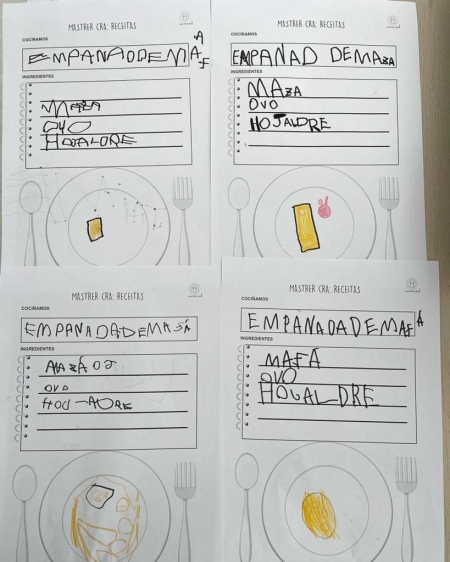 MASTRER CRA: RECEITAS
COCIÑAMOS
EMPANAODEMAFA
INGREDIENTES
MAZA
OVO
HOUALDRE
MASTRER CRA: RECEITAS
COCIÑAMOS
EMPAÑAD DEMAZA
INGREDIENTES
MAZA
OVO
HOJALDRE
MASTRER CRA: RECEITAS
COCIÑAMOS
EMPANADADEMASÁ
INGREDIENTES
OVO
MASTRER CRA: RECEITAS
COCIÑAMOS
EMPANADADEMAFÁ
INGREDIENTES
MAFÁ
OVO
HOUALDRE